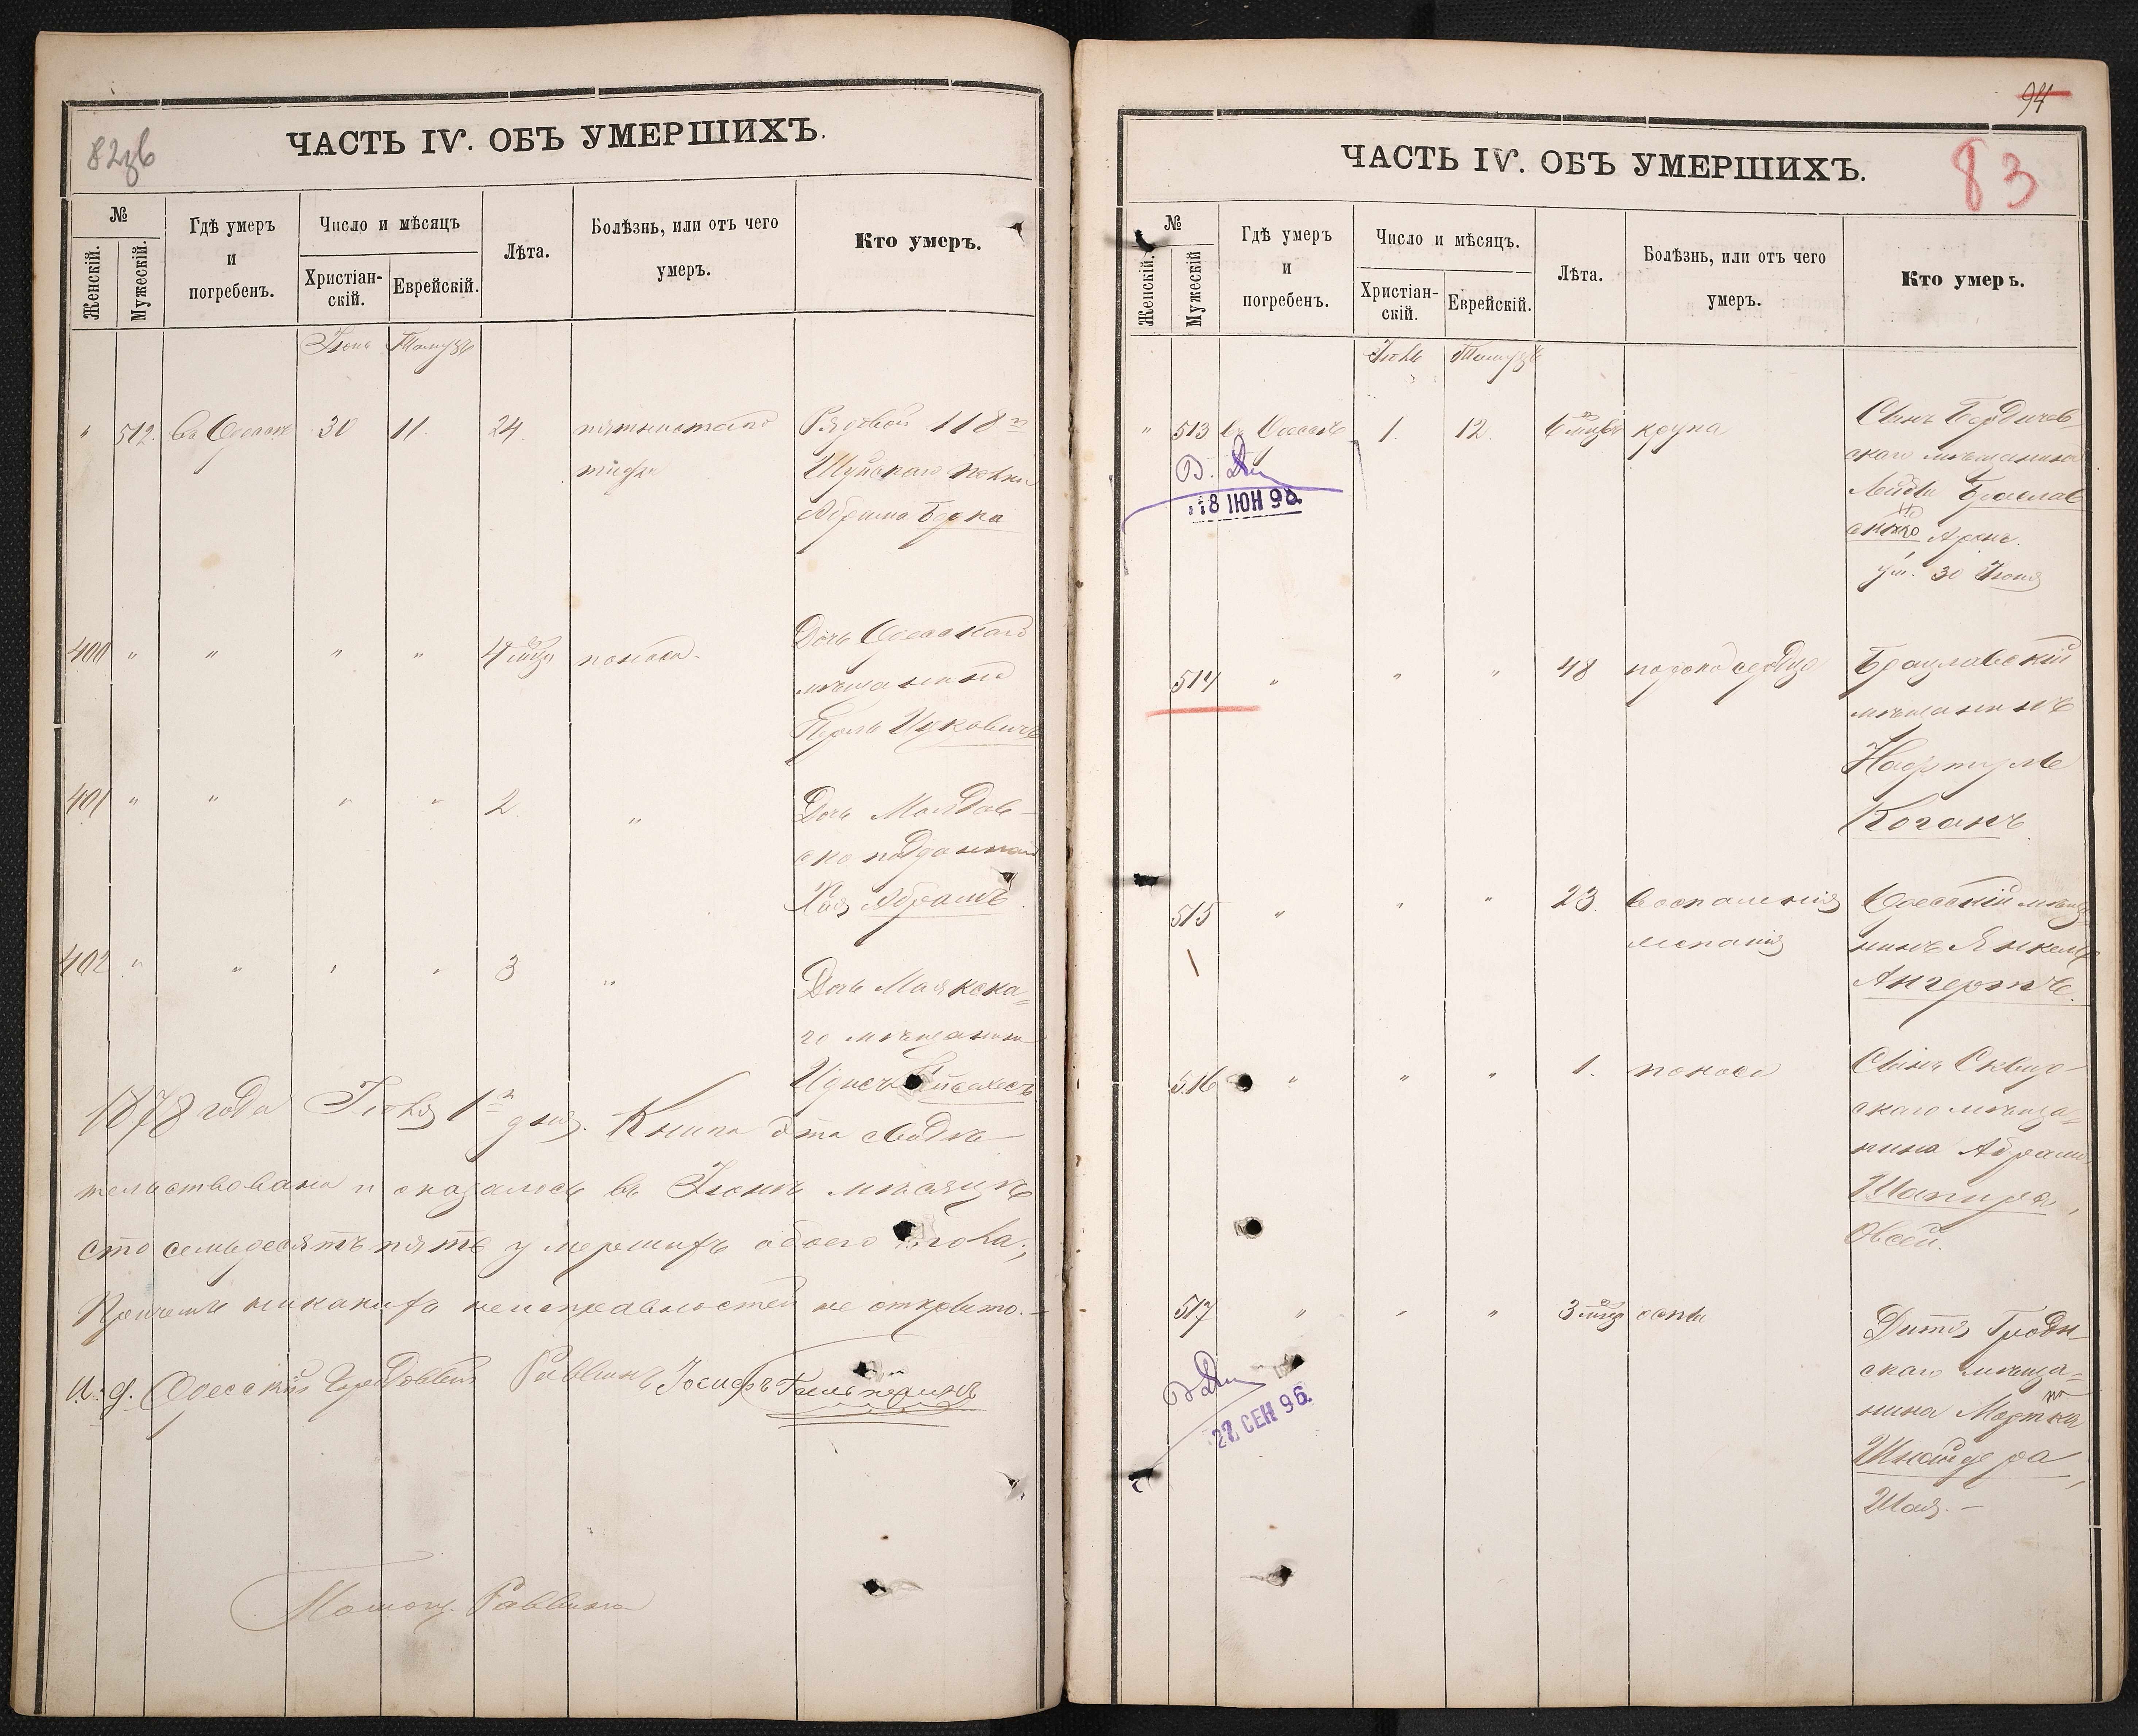 82об
ЧАСТЬ IV. ОБЪ УМЕРШИХЪ.
№
Женскій.
Мужескій.
Гдѣ умеръ
и
погребенъ.
Число и мѣсяцъ
Христіан-
скій.
Еврейскій.
Лѣта.
Болѣзнь, или отъ чего
умеръ.
Кто умеръ.
Іюнь Тамузъ
" 512. въ Одессѣ 30 11. 24. пятнистаго Рядовой 118го
тифа Шуйскаго полка
Абрама
400 " " " " 4 мѣс. поноса. Дочь Одесскаго
мѣщанина
Перль Ицковичъ
401 " " " " 2. " Дочь Молдав-
ско подданнаго
Хая Абрамъ.
402 " " " " 3 " Дочь Маякска-
го мѣщанина
1878 года Іюля 1го дня. Книга эта свидѣ-
тельствована и оказалось въ Іюнѣ мѣсяцѣ
сто семьдесятъ пять умершихъ обоего пола;
Причемъ никакихъ неисправностей не открыто.—
И. д. Одесскій Городовый Раввинъ Іосифъ Гальперинъ
Помощ. Раввина
94
ЧАСТЬ IV. ОБЪ УМЕРШИХЪ.
83
№
Женскій.
Мужескій
Гдѣ умеръ
и
погребенъ.
Число и мѣсяцъ.
Христіан-
скій.
Еврейскій.
Лѣта.
Болѣзнь, или отъ чего
умеръ.
Кто умеръ.
Іюль Тамузъ
" 513 въ Одессѣ 1. 12. 6 мѣс. крупа Сынъ Бердичев-
скаго мѣщанина
Лейбы Браслав
скаго Аронъ.
ум. 30 Іюня
18 ІЮН 98.
514 " " " 48 порока сердца Брацлавскій
мѣщанинъ
Нафтулъ
Коганъ
515 " " " 23. воспаленія Одесскій мѣща-
нинъ Янкель
Ангертъ.
516 " " " 1. поноса Сынъ Сквир-
скаго мѣща-
нина Абрама
Шапира,
Овсей.
517 " " " 3 мѣс. оспы Дитя Гродн-
скаго мѣща-
нина Мортка
Шнайдера,
Шая.—
27 СЕН 96.